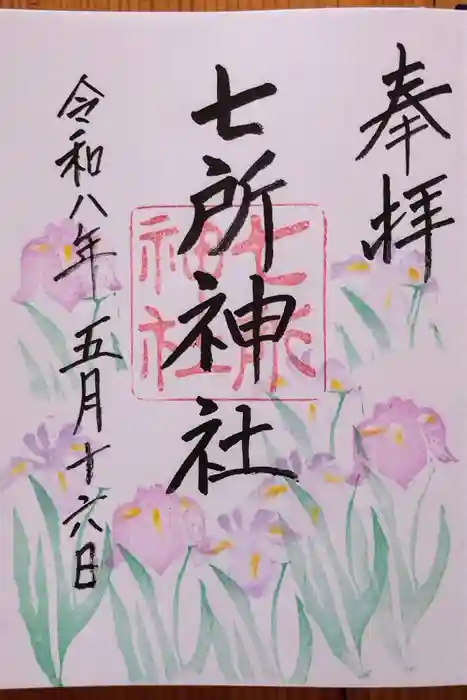 奉拝
七所神社
七所神社
令和八年五月十六日